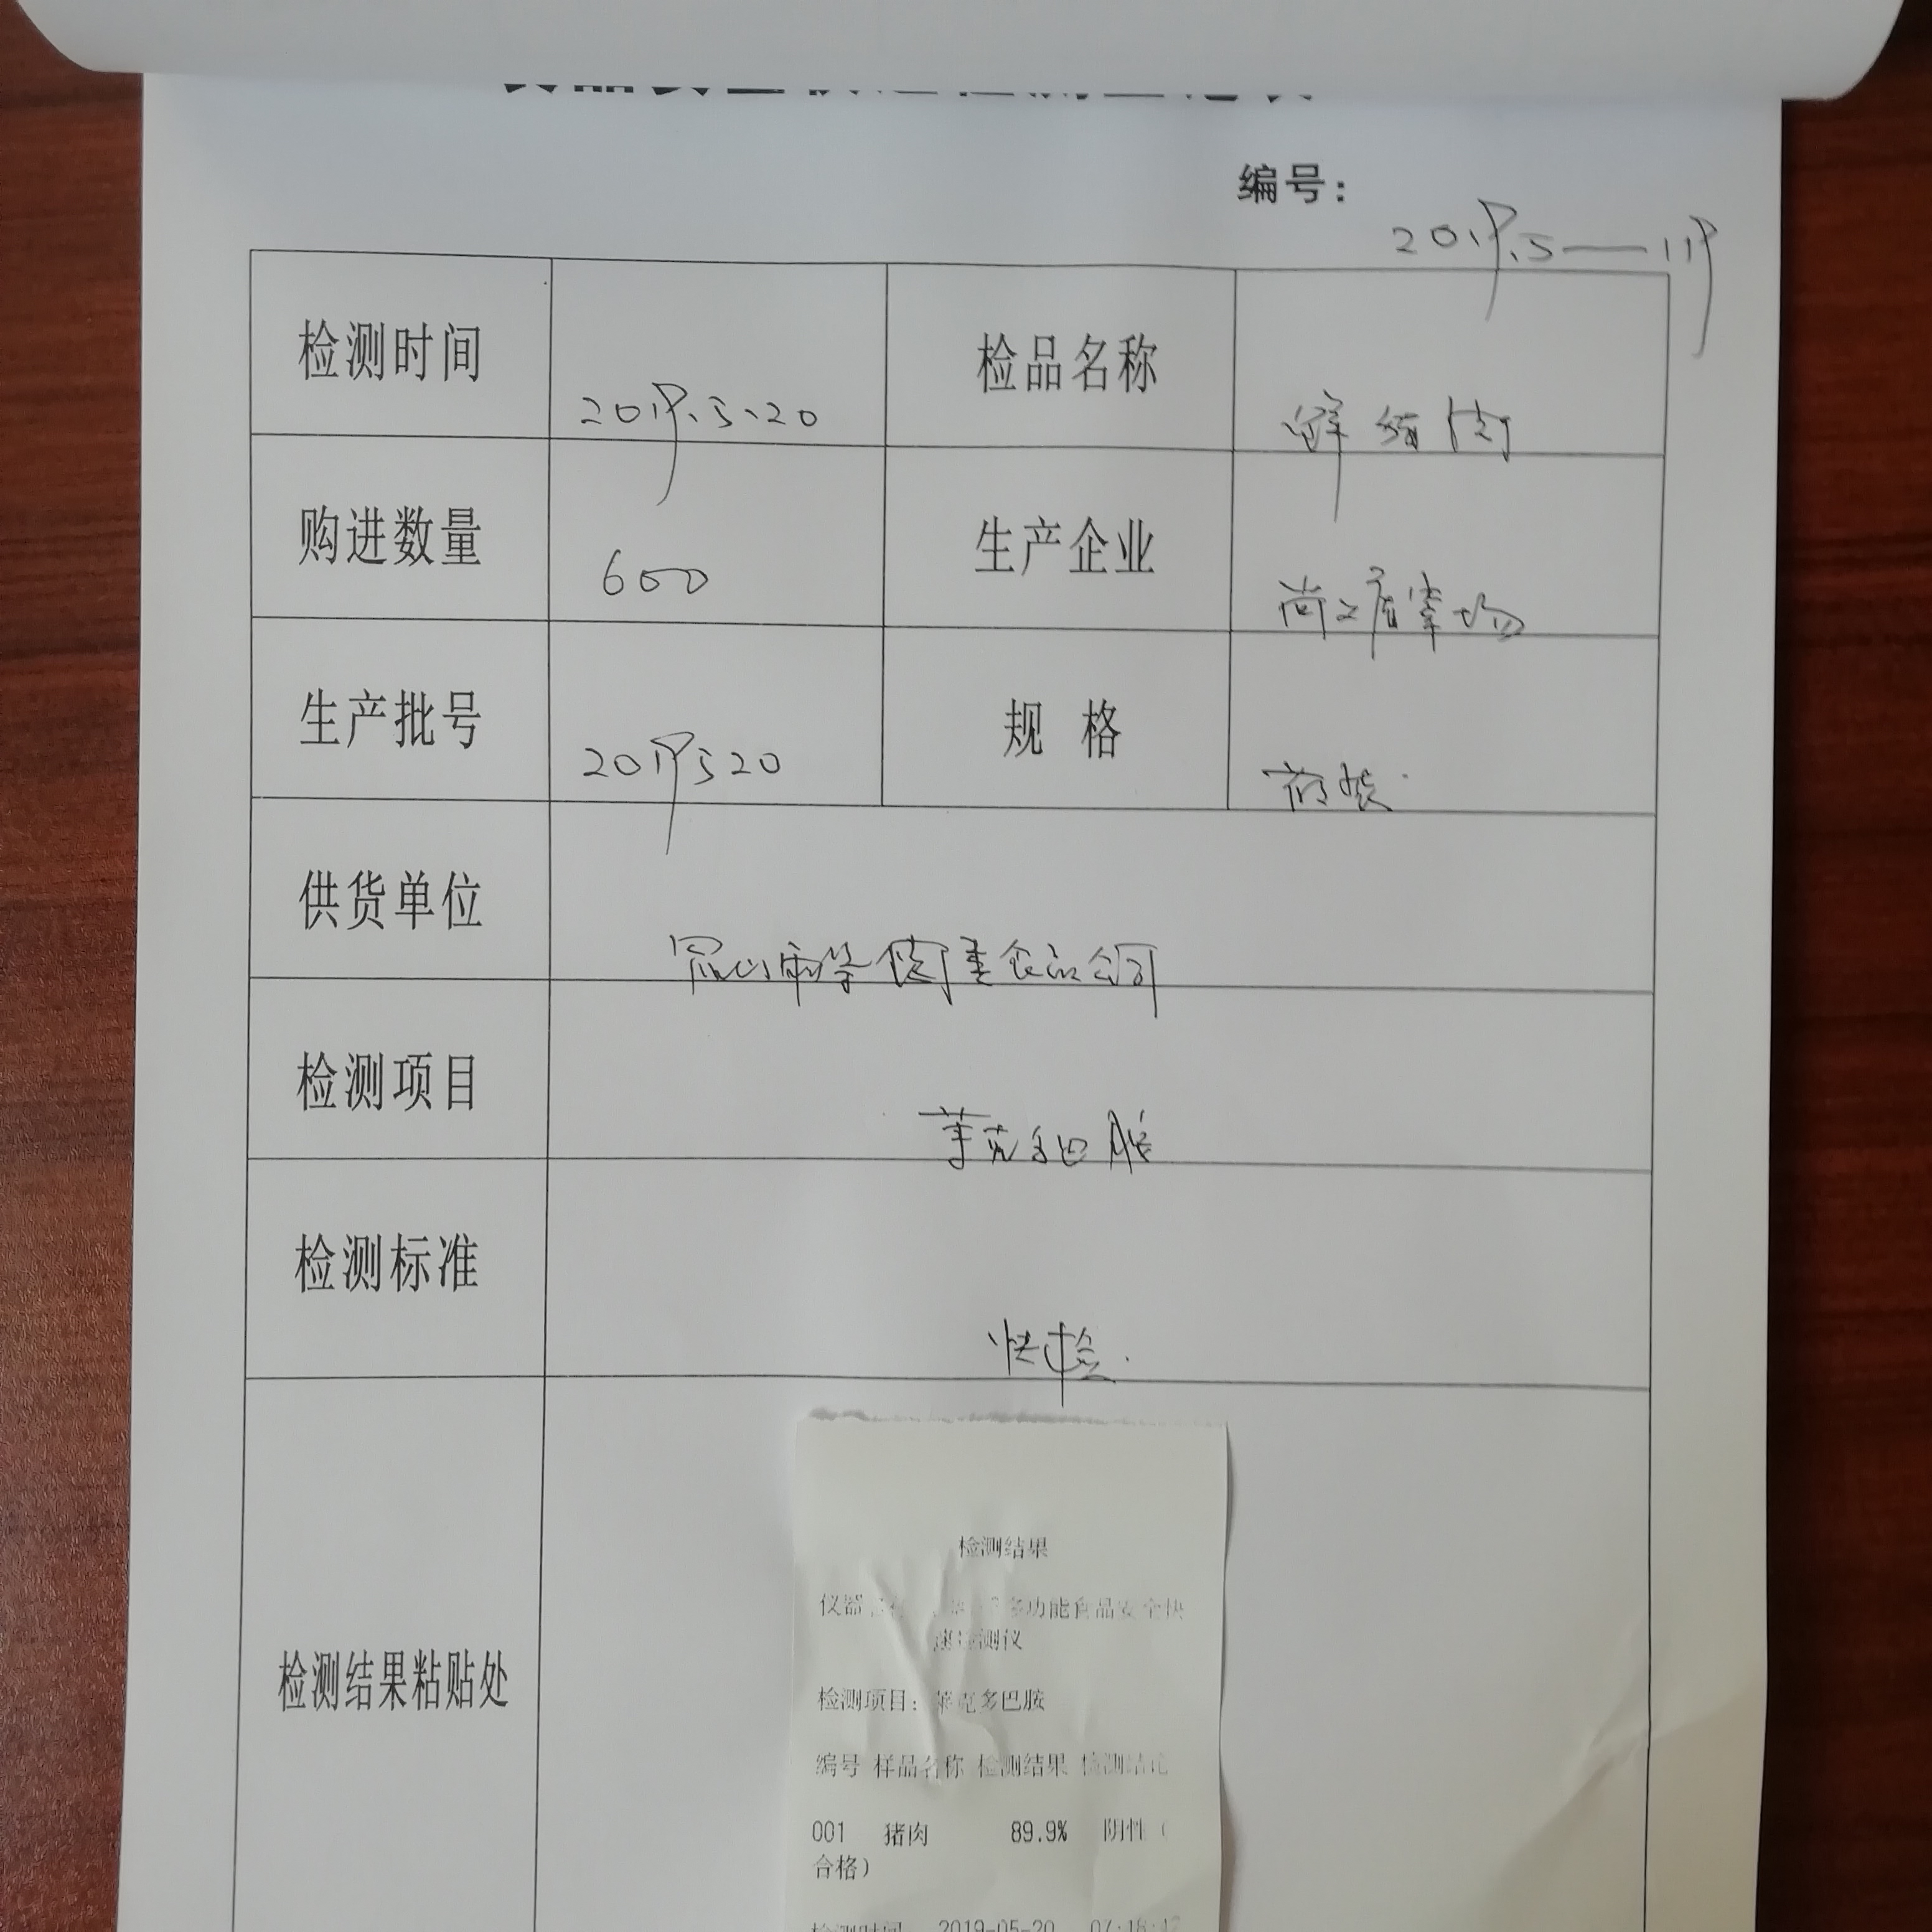 编号：
2019.5—119
检测时间 2019.5.20 检品名称 鲜猪肉
购进数量 600 生产企业 尚之屠宰场
生产批号 2019520 规 格 散装
供货单位 昆山市华 食品公司
检测项目 莱克多巴胺
检测标准 快检.
检测结果粘贴处
检测结果
仪器 多功能食品安全快
速检测仪
检测项目：莱克多巴胺
编号 样品名称 检测结果 检测结论
001 猪肉 89.9% 阴性（
合格）
检测时间 2019-05-20 07:16:42